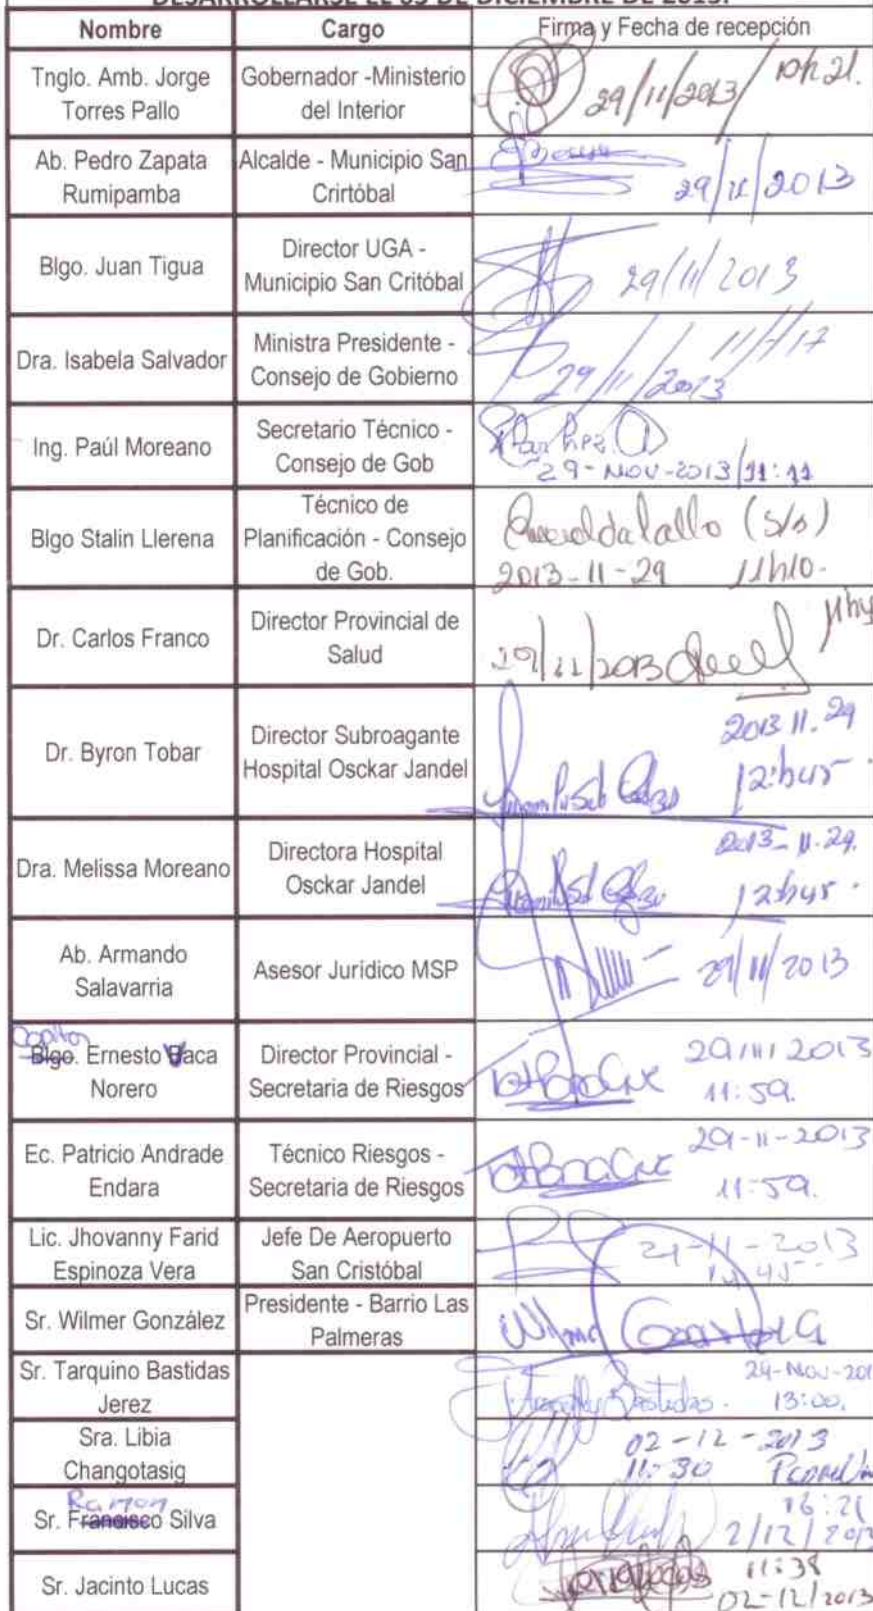 DESARROLLARSE EL 03 DE DICIEMBRE DE 2013.
Nombre Cargo Firma y Fecha de recepción
Tnglo. Amb. Jorge Torres Pallo
Gobernador -Ministerio del Interior
29/11/2013/ 10h21.
Ab. Pedro Zapata Rumipamba
Alcalde - Municipio San Crirtóbal
29/11/2013
Blgo. Juan Tigua
Director UGA - Municipio San Critóbal
29/11/2013
Dra. Isabela Salvador
Ministra Presidente - Consejo de Gobierno
11H17
29/11/2013
Ing. Paúl Moreano
Secretario Técnico - Consejo de Gob
29-NOV-2013/11:11
Blgo Stalin Llerena
Técnico de Planificación - Consejo de Gob.
(S/s)
2013-11-29 11h10.
Dr. Carlos Franco
Director Provincial de Salud
29/11/2013
Dr. Byron Tobar
Director Subroagante Hospital Osckar Jandel
2013 11.29
12:h45
Dra. Melissa Moreano
Directora Hospital Osckar Jandel
2013-11-29.
12h45.
Ab. Armando Salavarria
Asesor Jurídico MSP
29/11/2013
Blgo. Ernesto Vaca Norero
Director Provincial - Secretaria de Riesgos
29/11/2013
11:59.
Ec. Patricio Andrade Endara
Técnico Riesgos - Secretaria de Riesgos
29-11-2013
11:59.
Lic. Jhovanny Farid Espinoza Vera
Jefe De Aeropuerto San Cristóbal
29-11-2013
Sr. Wilmer González
Presidente - Barrio Las Palmeras
Wilmer
Sr. Tarquino Bastidas Jerez
Bastidas.
29-NOV-201
13:00.
Sra. Libia Changotasig
02-12-2013
11:30
Ramon
Sr. Francisco Silva
16:21
2/12/2013
Sr. Jacinto Lucas
11:38
02-12/2013